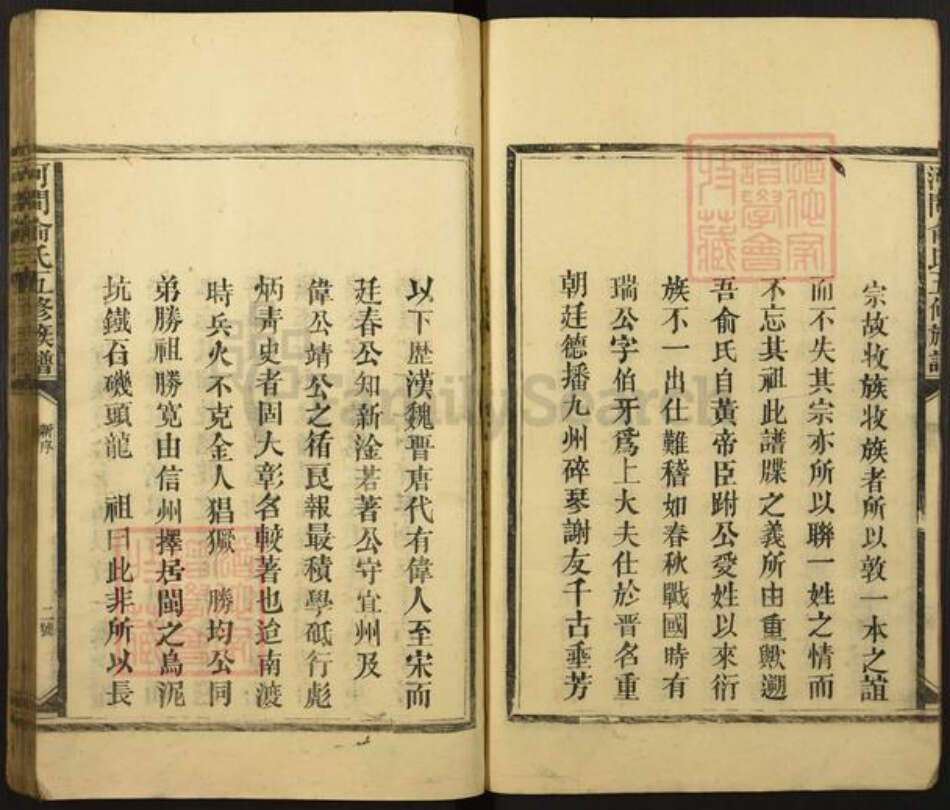 宗故收族收族者所以敦一本之誼
而不失其宗亦所以聯一姓之情而
不忘其祖此譜牒之義所由重歟遡
吾俞氏自黃帝臣跗公爱姓以來衍
族不一出仕難稽如春秋戰國時有
瑞公字伯牙爲上大夫仕於晋名重
朝廷德播九州碎琴謝友千古垂芳
以下歷漢魏晋唐代有偉人至宋而
廷春公知新淦若著公守宜州及
偉公靖公之循良報最積學砥行彪
炳靑史者固大彰名較著也迨南渡
時兵火不克金人猖獗 勝均公同
弟勝祖勝寬由信州擇居閩之烏泥
坑鐵石磯頭龍 祖曰此非所以長
河間俞氏五修族譜
新序
二號
河間俞氏五修族譜
德化家譜學會收藏
FamilySearch